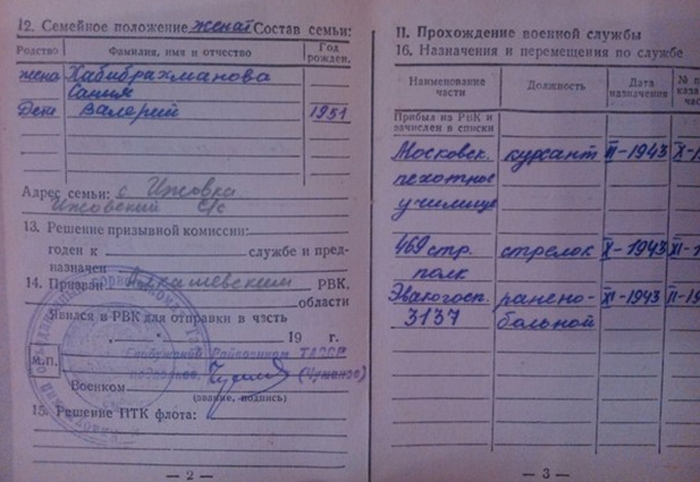 12. Семейное положение женат Состав семьи:
Родство Фамилия, имя и отчество Год рожден.
жена Хабибрахманова
Сания
Дети Валерий 1951
Адрес семьи: с Ижовка
Ижовский С/С
13. Решение призывной комиссии:
годен к службе и пред-
назначен
14. Призван РВК,
области
Явился в РВК для отправки в часть
19 г.
Райвоенком ТАССР
М.П.
Военком
(звание, подпись)
15. Решение ПТК флота:
— 2 —
II. Прохождение военной службы
16. Назначения и перемещения по службе
Наименование части Должность Дата назначения № п
каза
ча
Прибыл из РВК и
зачислен в списки
Московск. курсант VI-1943 X-1
пехотное
училище
469 стр. стрелок X-1943 XI-1
полк
Эвакогосп. ранено- XI-1943 II-1
3137 больной
— 3 —